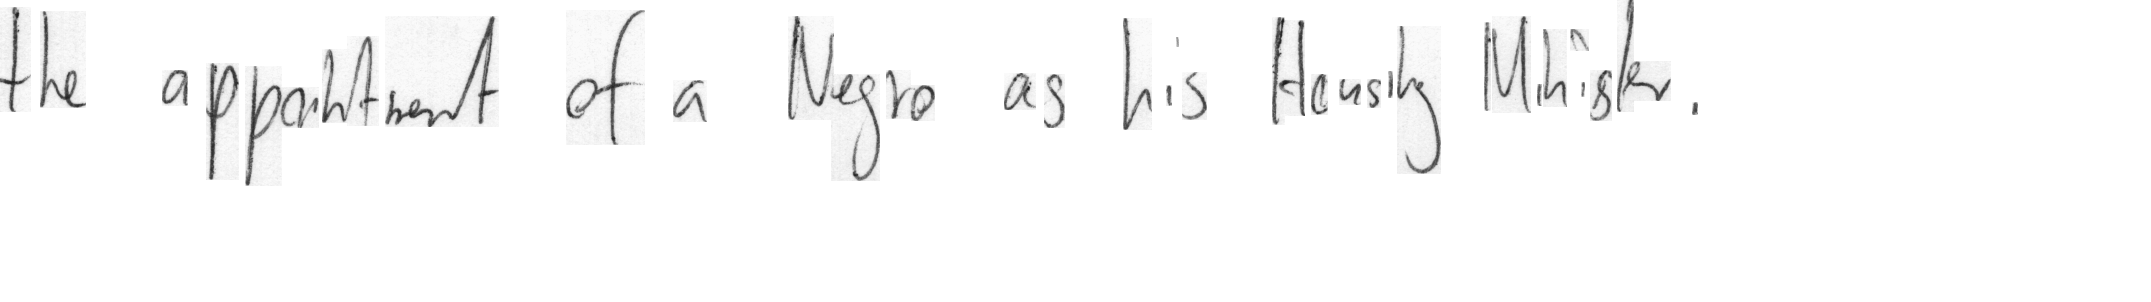 the appointment of a Negro as his Housing Minister.